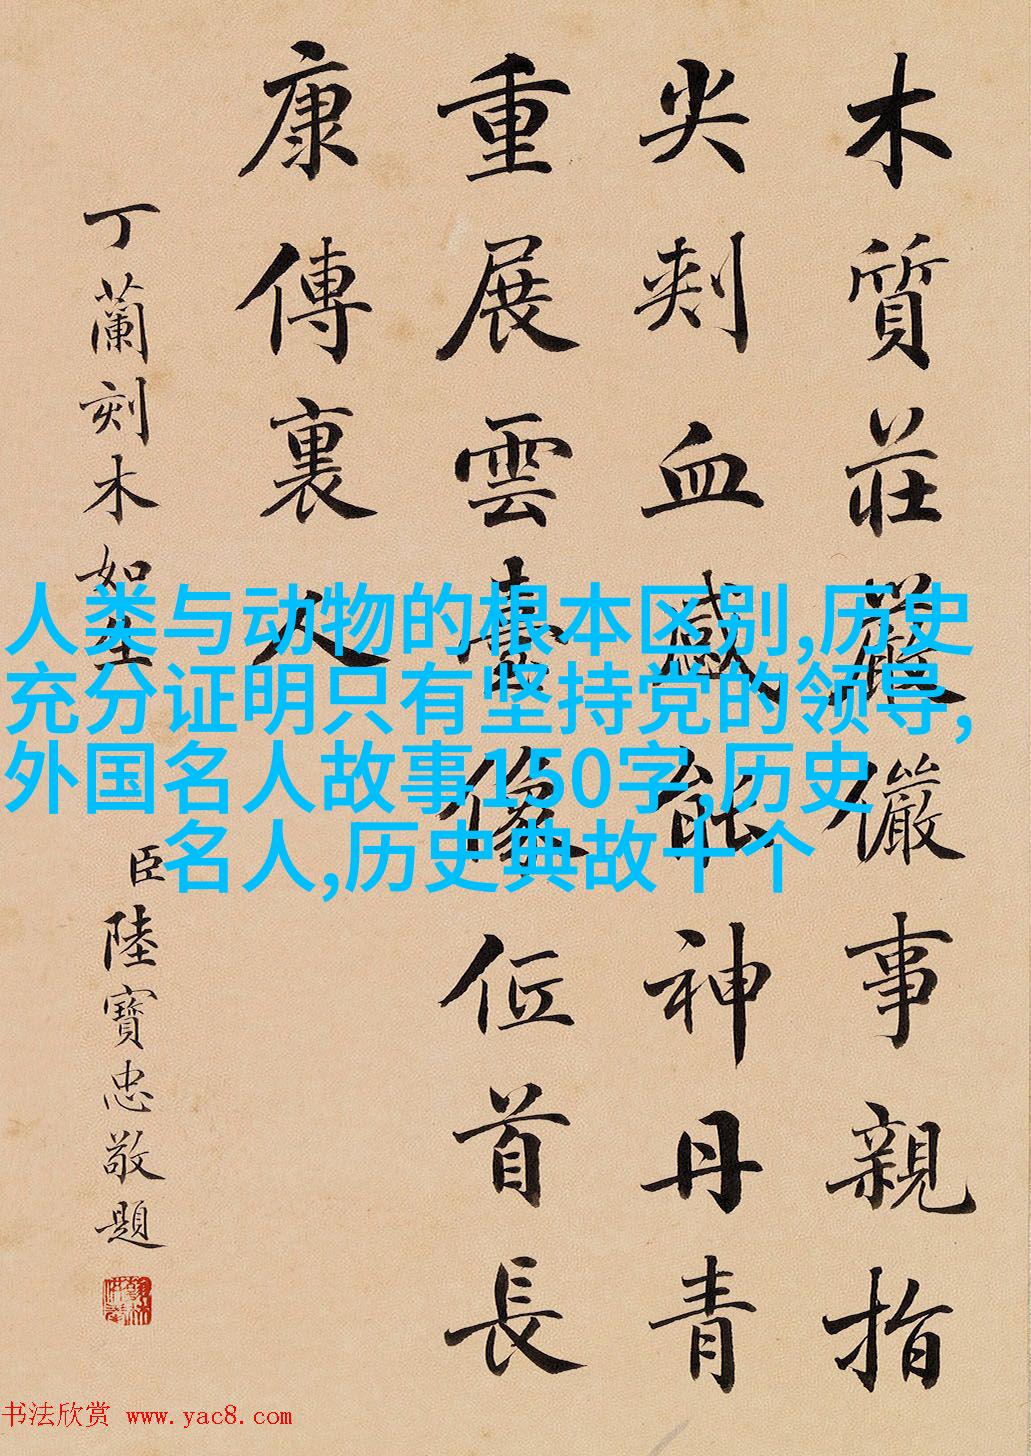 木質莊嚴儼事親指
尖刺血感能神丹青
重展雲臺像低首長
康傳裏人
丁蘭刻木如生
臣陸寶忠敬題
人类与动物的根本区别,历史
充分证明只有坚持党的领导,
外国名人故事150字,历史
名人,历史典故十个
书法欣赏 www.yac8.com